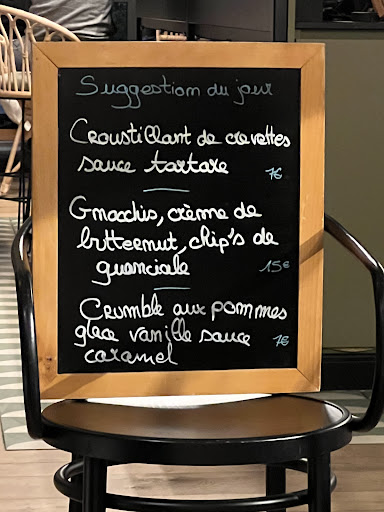 Suggestion du jour
Croustillant de crevettes
sauce tartare 7€
Gnocchis, crème de
butternut, chip's de
guanciale 15€
Crumble aux pommes
glace vanille sauce
caramel 7€